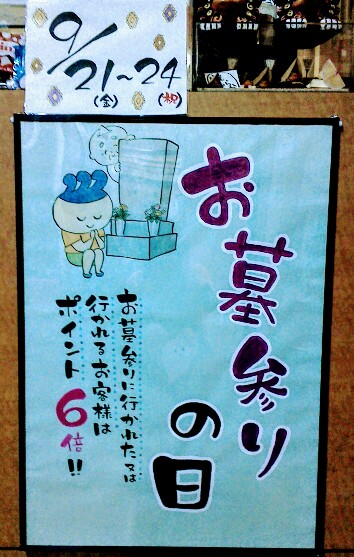 9/21~24
(金) (祝)
お墓参り
の日
お墓参りに行かれた又は
行かれるお客様は
ポイント6倍!!